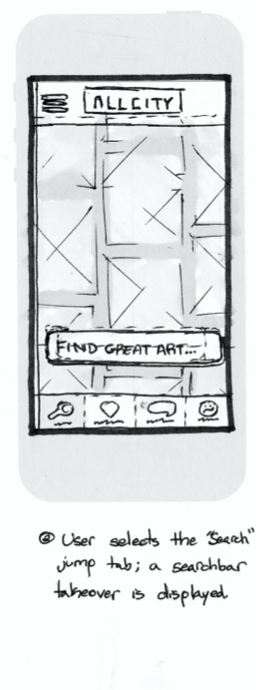 ALLCITY
FIND GREAT ART...
② User selects the "Search"
jump tab; a searchbar
takeover is displayed